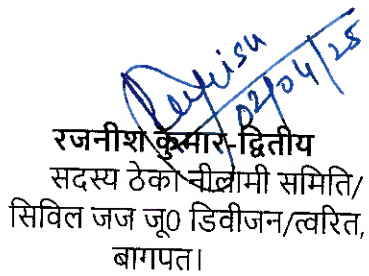 02/04/25
रजनीश कुमार-द्वितीय
सदस्य ठेका नीलामी समिति/
सिविल जज जू0 डिवीजन/त्वरित,
बागपत।